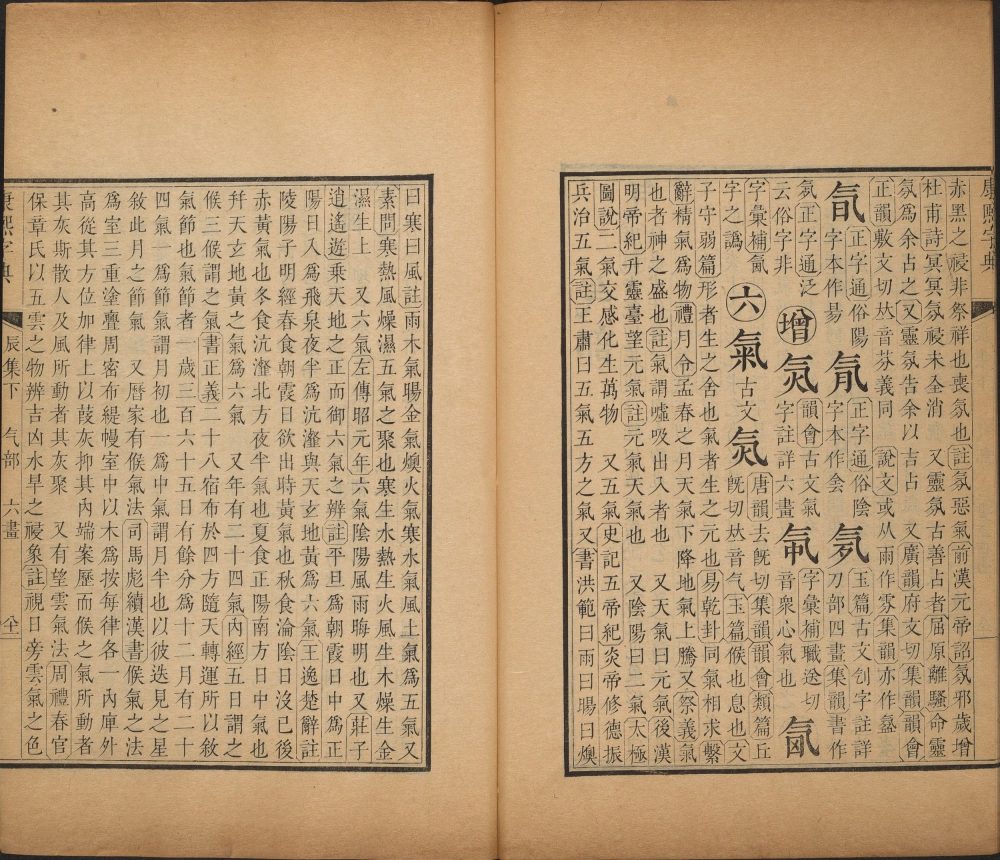 康熙字典
赤黑之祲非祭祥也喪氛也註氛惡氣前漢元帝詔氛邪歲增
杜甫詩冥冥氛祲未全消 又靈氛古善占者屈原離騷命靈
氛爲余占之又靈氛告余以吉占 又廣韻府文切集韻韻會
正韻敷文切𠀤音芬義同 說文或从雨作雰集韻亦作
正字通俗陽字本作昜 正字通俗陰字本作侌 玉篇古文刨字註詳刀部四畫集韻書作
氛正字通泛云俗字非 增 炁 韻會古文氣字註詳六畫 字彙補職送切音衆心氣也
字彙補氤字之譌 六 氣 古文炁 唐韻去旣切集韻韻會類篇丘旣切𠀤音气玉篇候也息也文
子守弱篇形者生之舍也氣者生之元也易乾卦同氣相求繫
辭精氣爲物禮月令孟春之月天氣下降地氣上騰又祭義氣
也者神之盛也註氣謂噓吸出入者也 又天氣曰元氣後漢
明帝紀升靈臺望元氣註元氣天氣也 又陰陽曰二氣太極
圖說二氣交感化生萬物 又五氣史記五帝紀炎帝修德振
兵治五氣註王肅曰五氣五方之氣又書洪範曰雨曰暘曰燠
曰寒曰風註雨木氣暘金氣燠火氣寒水氣風土氣爲五氣又
素問寒熱風燥濕五氣之聚也寒生水熱生火風生木燥生金
濕生土 又六氣左傳昭元年六氣陰陽風雨晦明也又莊子
逍遙遊乘天地之正而御六氣之辨註平旦爲朝霞日中爲正
陽日入爲飛泉夜半爲沆瀣與天玄地黃爲六氣王逸楚辭註
陵陽子明經春食朝霞日欲出時黃氣也秋食淪陰日沒已後
赤黃氣也冬食沆瀣北方夜半氣也夏食正陽南方日中氣也
幷天玄地黃之氣爲六氣 又年有二十四氣內經五日謂之
候三候謂之氣書正義二十八宿布於四方隨天轉運所以敘
氣節也氣節者一歲三百六十五日有餘分爲十二月有二十
四氣一爲節氣謂月初也一爲中氣謂月半也以彼迭見之星
敘此月之節氣 又曆家有候氣法司馬彪續漢書候氣之法
爲室三重塗釁周密布緹幔室中以木爲按每律各一內庳外
高從其方位加律上以葭灰抑其內端案歷而候之氣所動者
其灰斯散人及風所動者其灰聚 又有望雲氣法周禮春官
保章氏以五雲之物辨吉凶水旱之祲象註視日旁雲氣之色
康熙字典 辰集下 气部 六畫